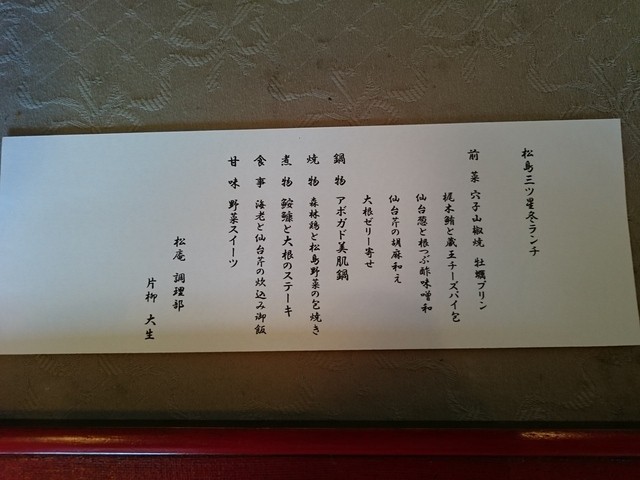 松島三ツ星冬ランチ
前菜 穴子山椒焼 牡蠣プリン
梶木鮪と蔵王チーズパイ包
仙台葱と根つぶ酢味噌和
仙台芹の胡麻和え
大根ゼリー寄せ
鍋物 アボガド美肌鍋
焼物 森林鶏と松島野菜の包焼き
煮物 鮟鱇と大根のステーキ
食事 海老と仙台芹の炊込み御飯
甘味 野菜スイーツ
松庵 調理部
片柳 大生